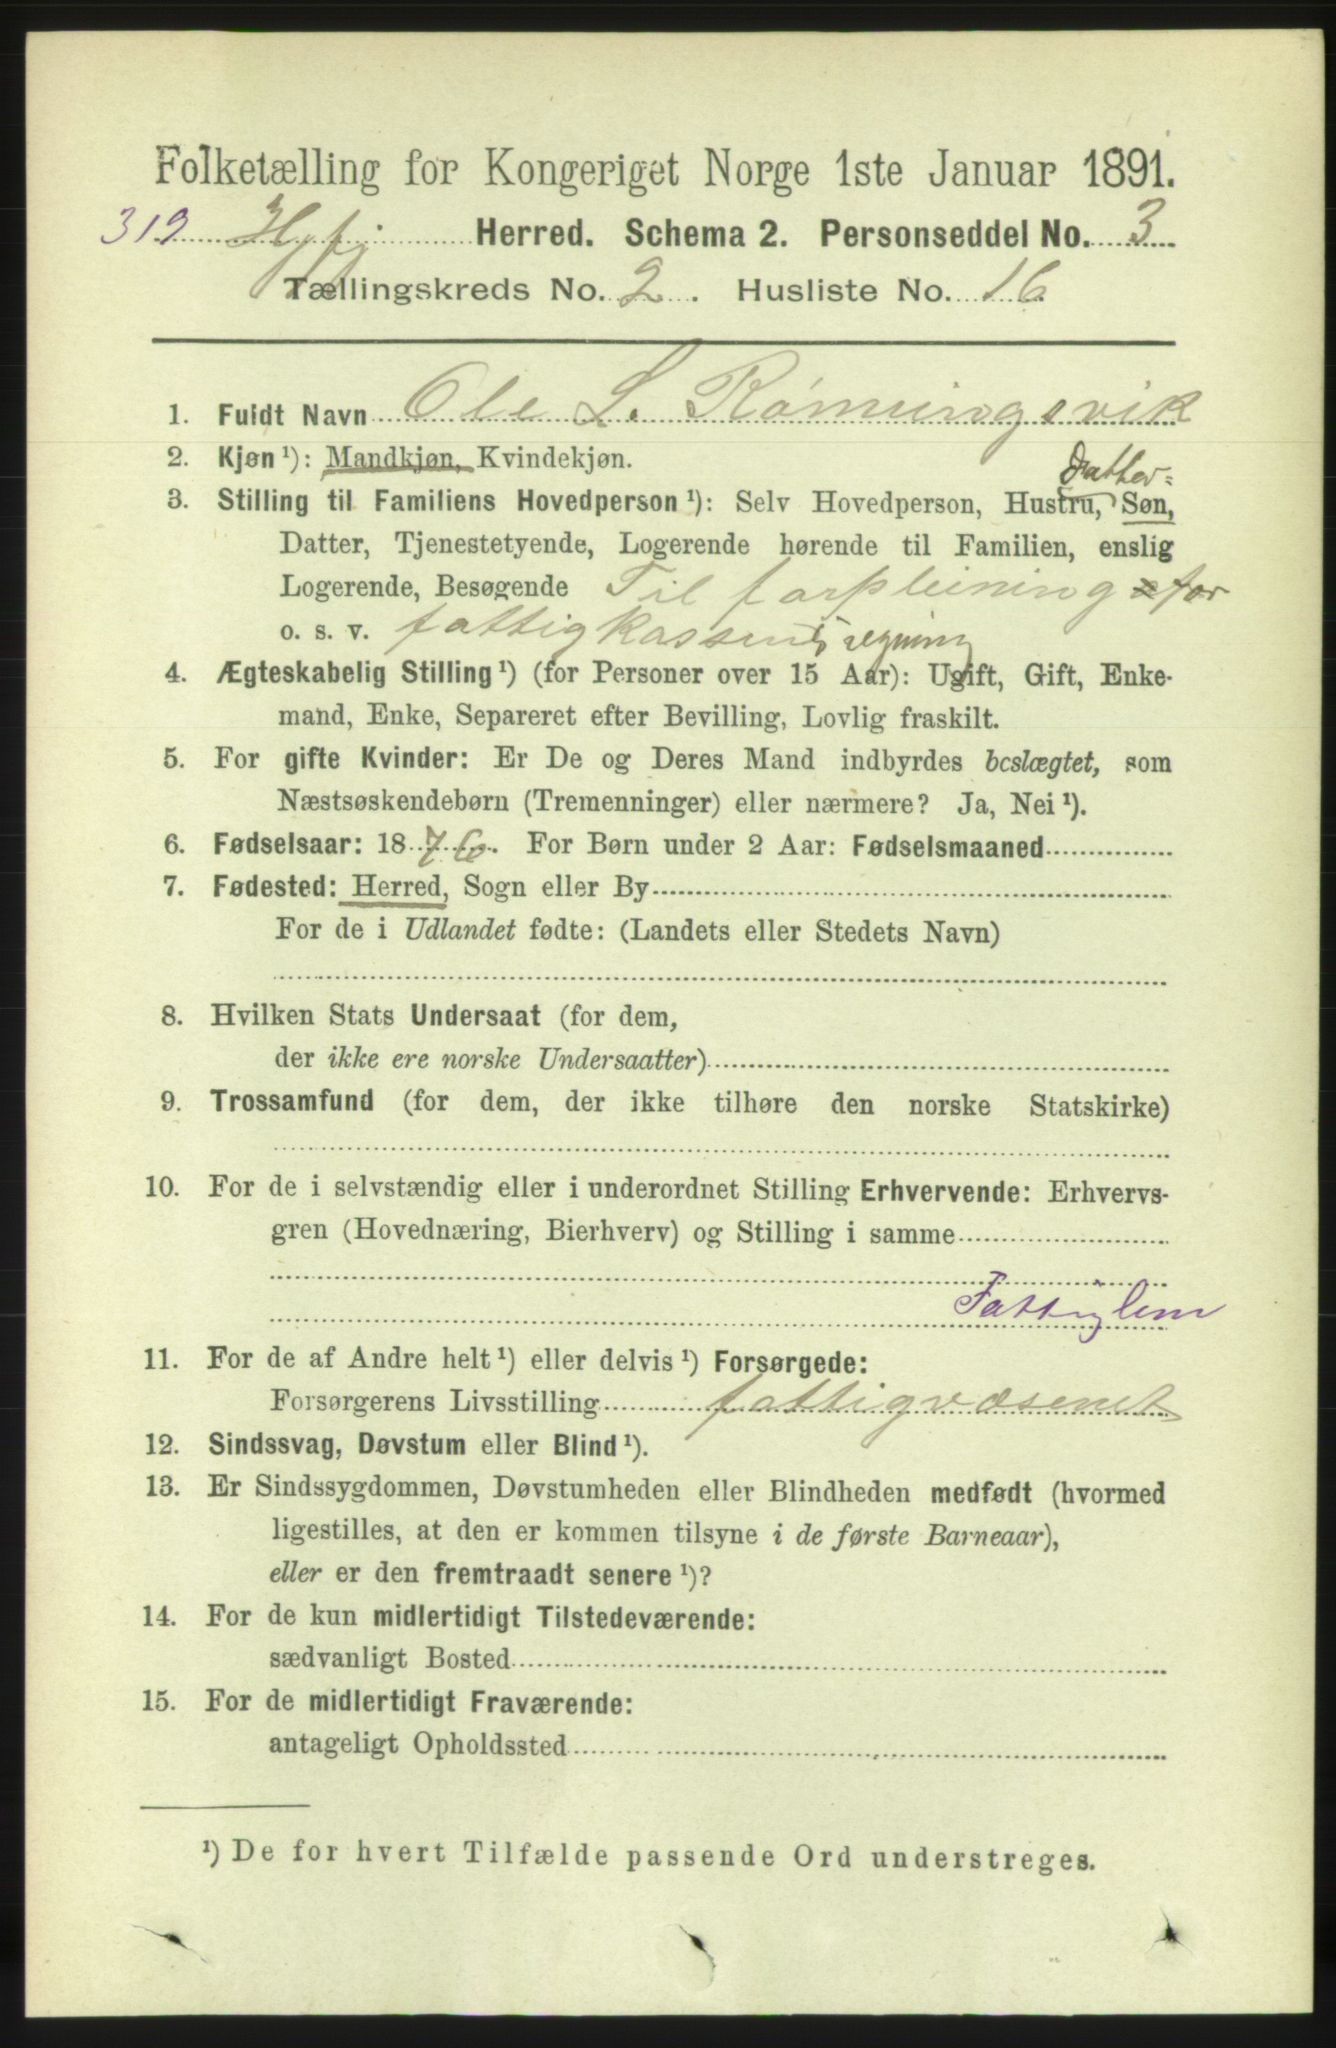 Folketælling for Kongeriget Norge 1ste Januar 1891.
319 Herred. Schema 2. Personseddel No. 3
Tællingskreds No. 2. Husliste No. 16
1. Fuldt Navn Ole L. Rømuingsvik
2. Kjøn ¹): Mandkjøn, Kvindekjøn.
Datter=
3. Stilling til Familiens Hovedperson ¹): Selv Hovedperson, Hustru, Søn,
Datter, Tjenestetyende, Logerende hørende til Familien, enslig
Logerende, Besøgende Til forpleining for
o. s. v. fattigkassens regning
4. Ægteskabelig Stilling ¹) (for Personer over 15 Aar): Ugift, Gift, Enke-
mand, Enke, Separeret efter Bevilling, Lovlig fraskilt.
5. For gifte Kvinder: Er De og Deres Mand indbyrdes beslægtet, som
Næstsøskendebørn (Tremenninger) eller nærmere? Ja, Nei ¹).
6. Fødselsaar: 1876. For Børn under 2 Aar: Fødselsmaaned
7. Fødested: Herred, Sogn eller By
For de i Udlandet fødte: (Landets eller Stedets Navn)
8. Hvilken Stats Undersaat (for dem,
der ikke ere norske Undersaatter)
9. Trossamfund (for dem, der ikke tilhøre den norske Statskirke)
10. For de i selvstændig eller i underordnet Stilling Erhvervende: Erhvervs-
gren (Hovednæring, Bierhverv) og Stilling i samme
Fattiglem
11. For de af Andre helt ¹) eller delvis ¹) Forsørgede:
Forsørgerens Livsstilling fattigvæsenet
12. Sindssvag, Døvstum eller Blind ¹).
13. Er Sindssygdommen, Døvstumheden eller Blindheden medfødt (hvormed
ligestilles, at den er kommen tilsyne i de første Barneaar),
eller er den fremtraadt senere ¹)?
14. For de kun midlertidigt Tilstedeværende:
sædvanligt Bosted
15. For de midlertidigt Fraværende:
antageligt Opholdssted
¹) De for hvert Tilfælde passende Ord understreges.